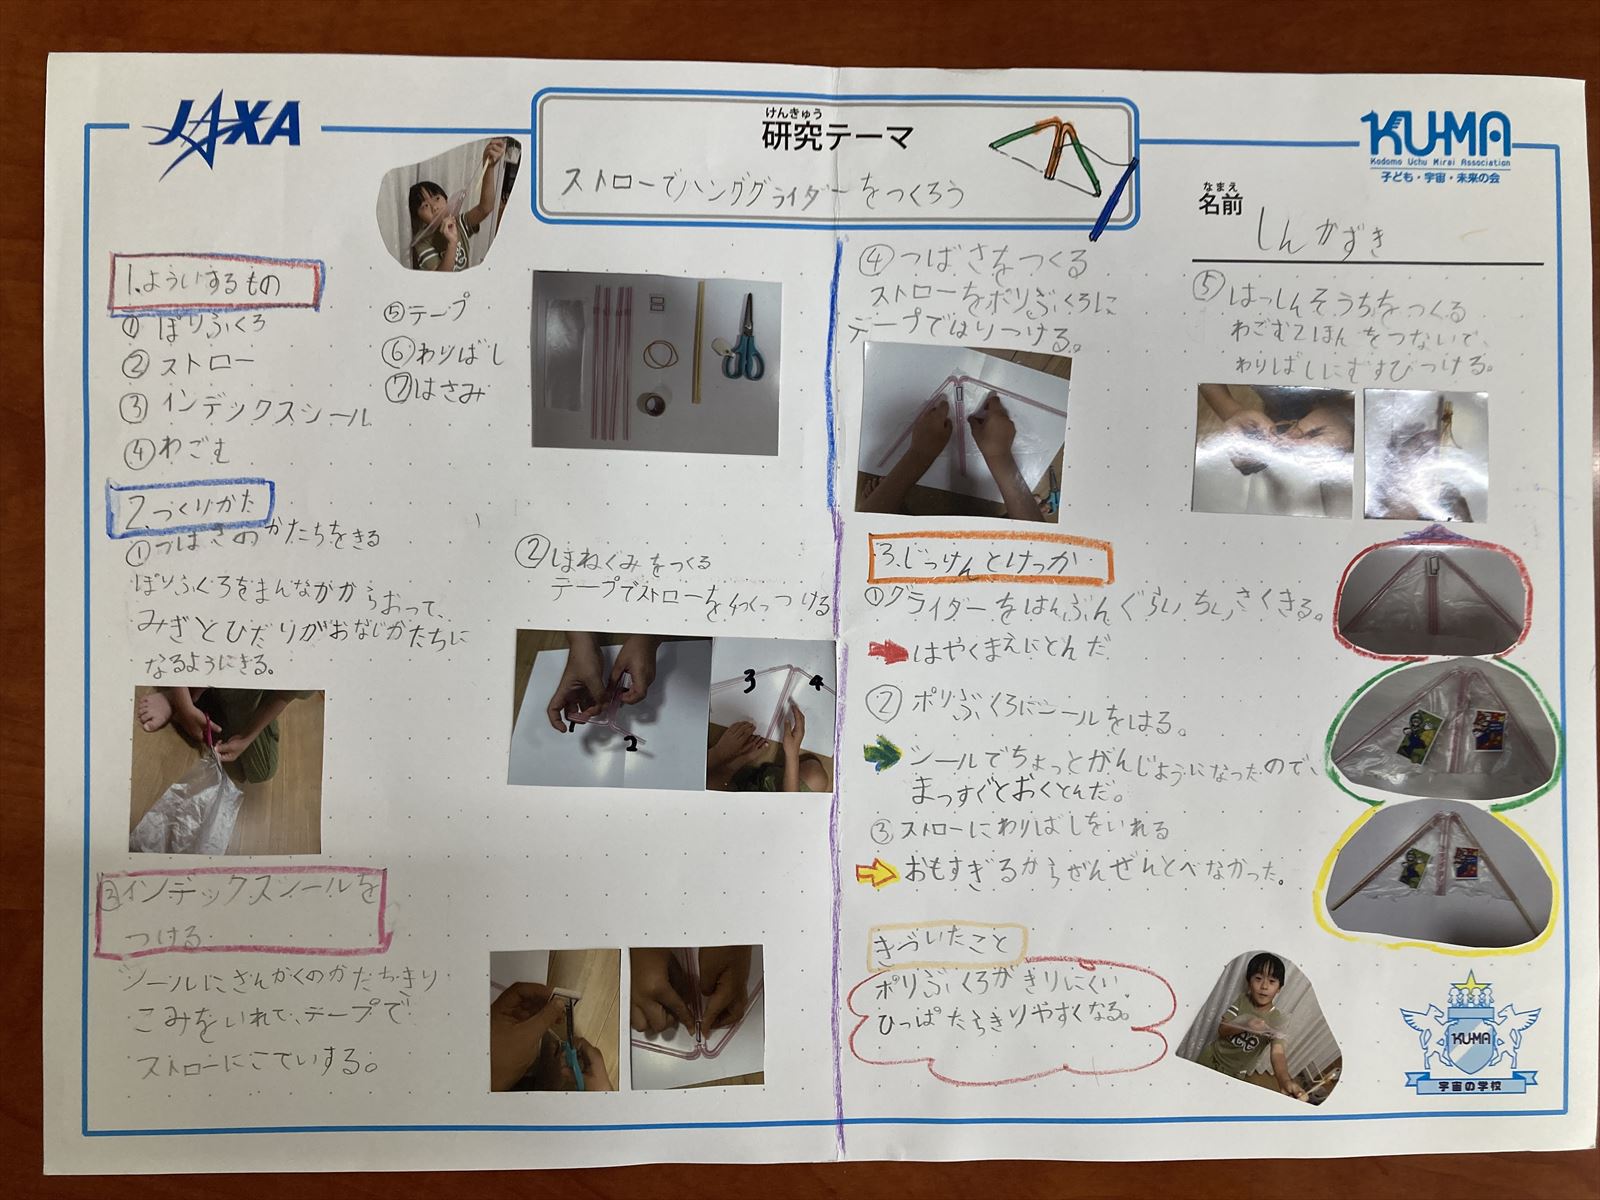 JAXA
けんきゅう
研究テーマ
ストローでハンググライダーをつくろう
KU-MA
Kodomo Uchu Mirai Association
子ども・宇宙・未来の会
なまえ
名前
しんかずき
1.よういするもの
① ぽりふくろ
② ストロー
③ インデックスシール
④ わごむ
⑤ テープ
⑥ わりばし
⑦ はさみ
2.つくりかた
① つばさのかたちをきる
ぽりふくろをまんなかからおって、
みぎとひだりがおなじかたちに
なるようにきる。
② ほねくみをつくる
テープでストローをくっつける
1
2
3
4
③ インデックスシールを
つける
シールにさんかくのかたちきり
こみをいれて、テープで
ストローにこていする。
④ つばさをつくる
ストローをポリぶくろに
テープではりつける。
⑤ はっしんそうちをつくる
わごむ2ほんをつないで、
わりばしにむすびつける。
3.じっけんとけっか
① グライダーをはんぶんぐらいちいさくきる。
はやくまえにとんだ
② ポリぶくろにシールをはる。
シールでちょっとがんじょうになったので、
まっすぐとおくとんだ。
③ ストローにわりばしをいれる
おもすぎるからぜんぜんとべなかった。
きづいたこと
ポリぶくろがきりにくい
ひっぱたらきりやすくなる。
KU-MA
宇宙の学校